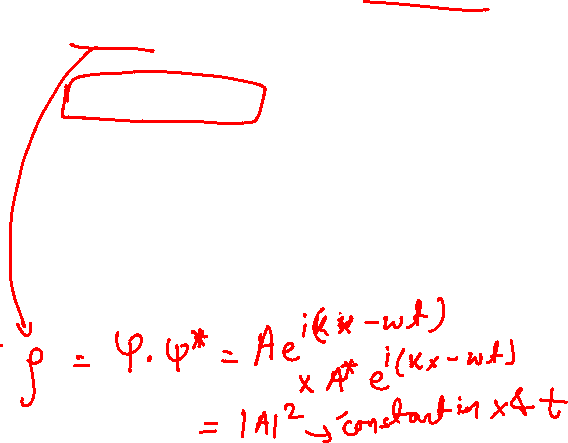 ρ = Ψ.Ψ* = Ae^{i(kx-wt)}
x A* e^{i(kx-wt)}
= |A|² → constant in x & t